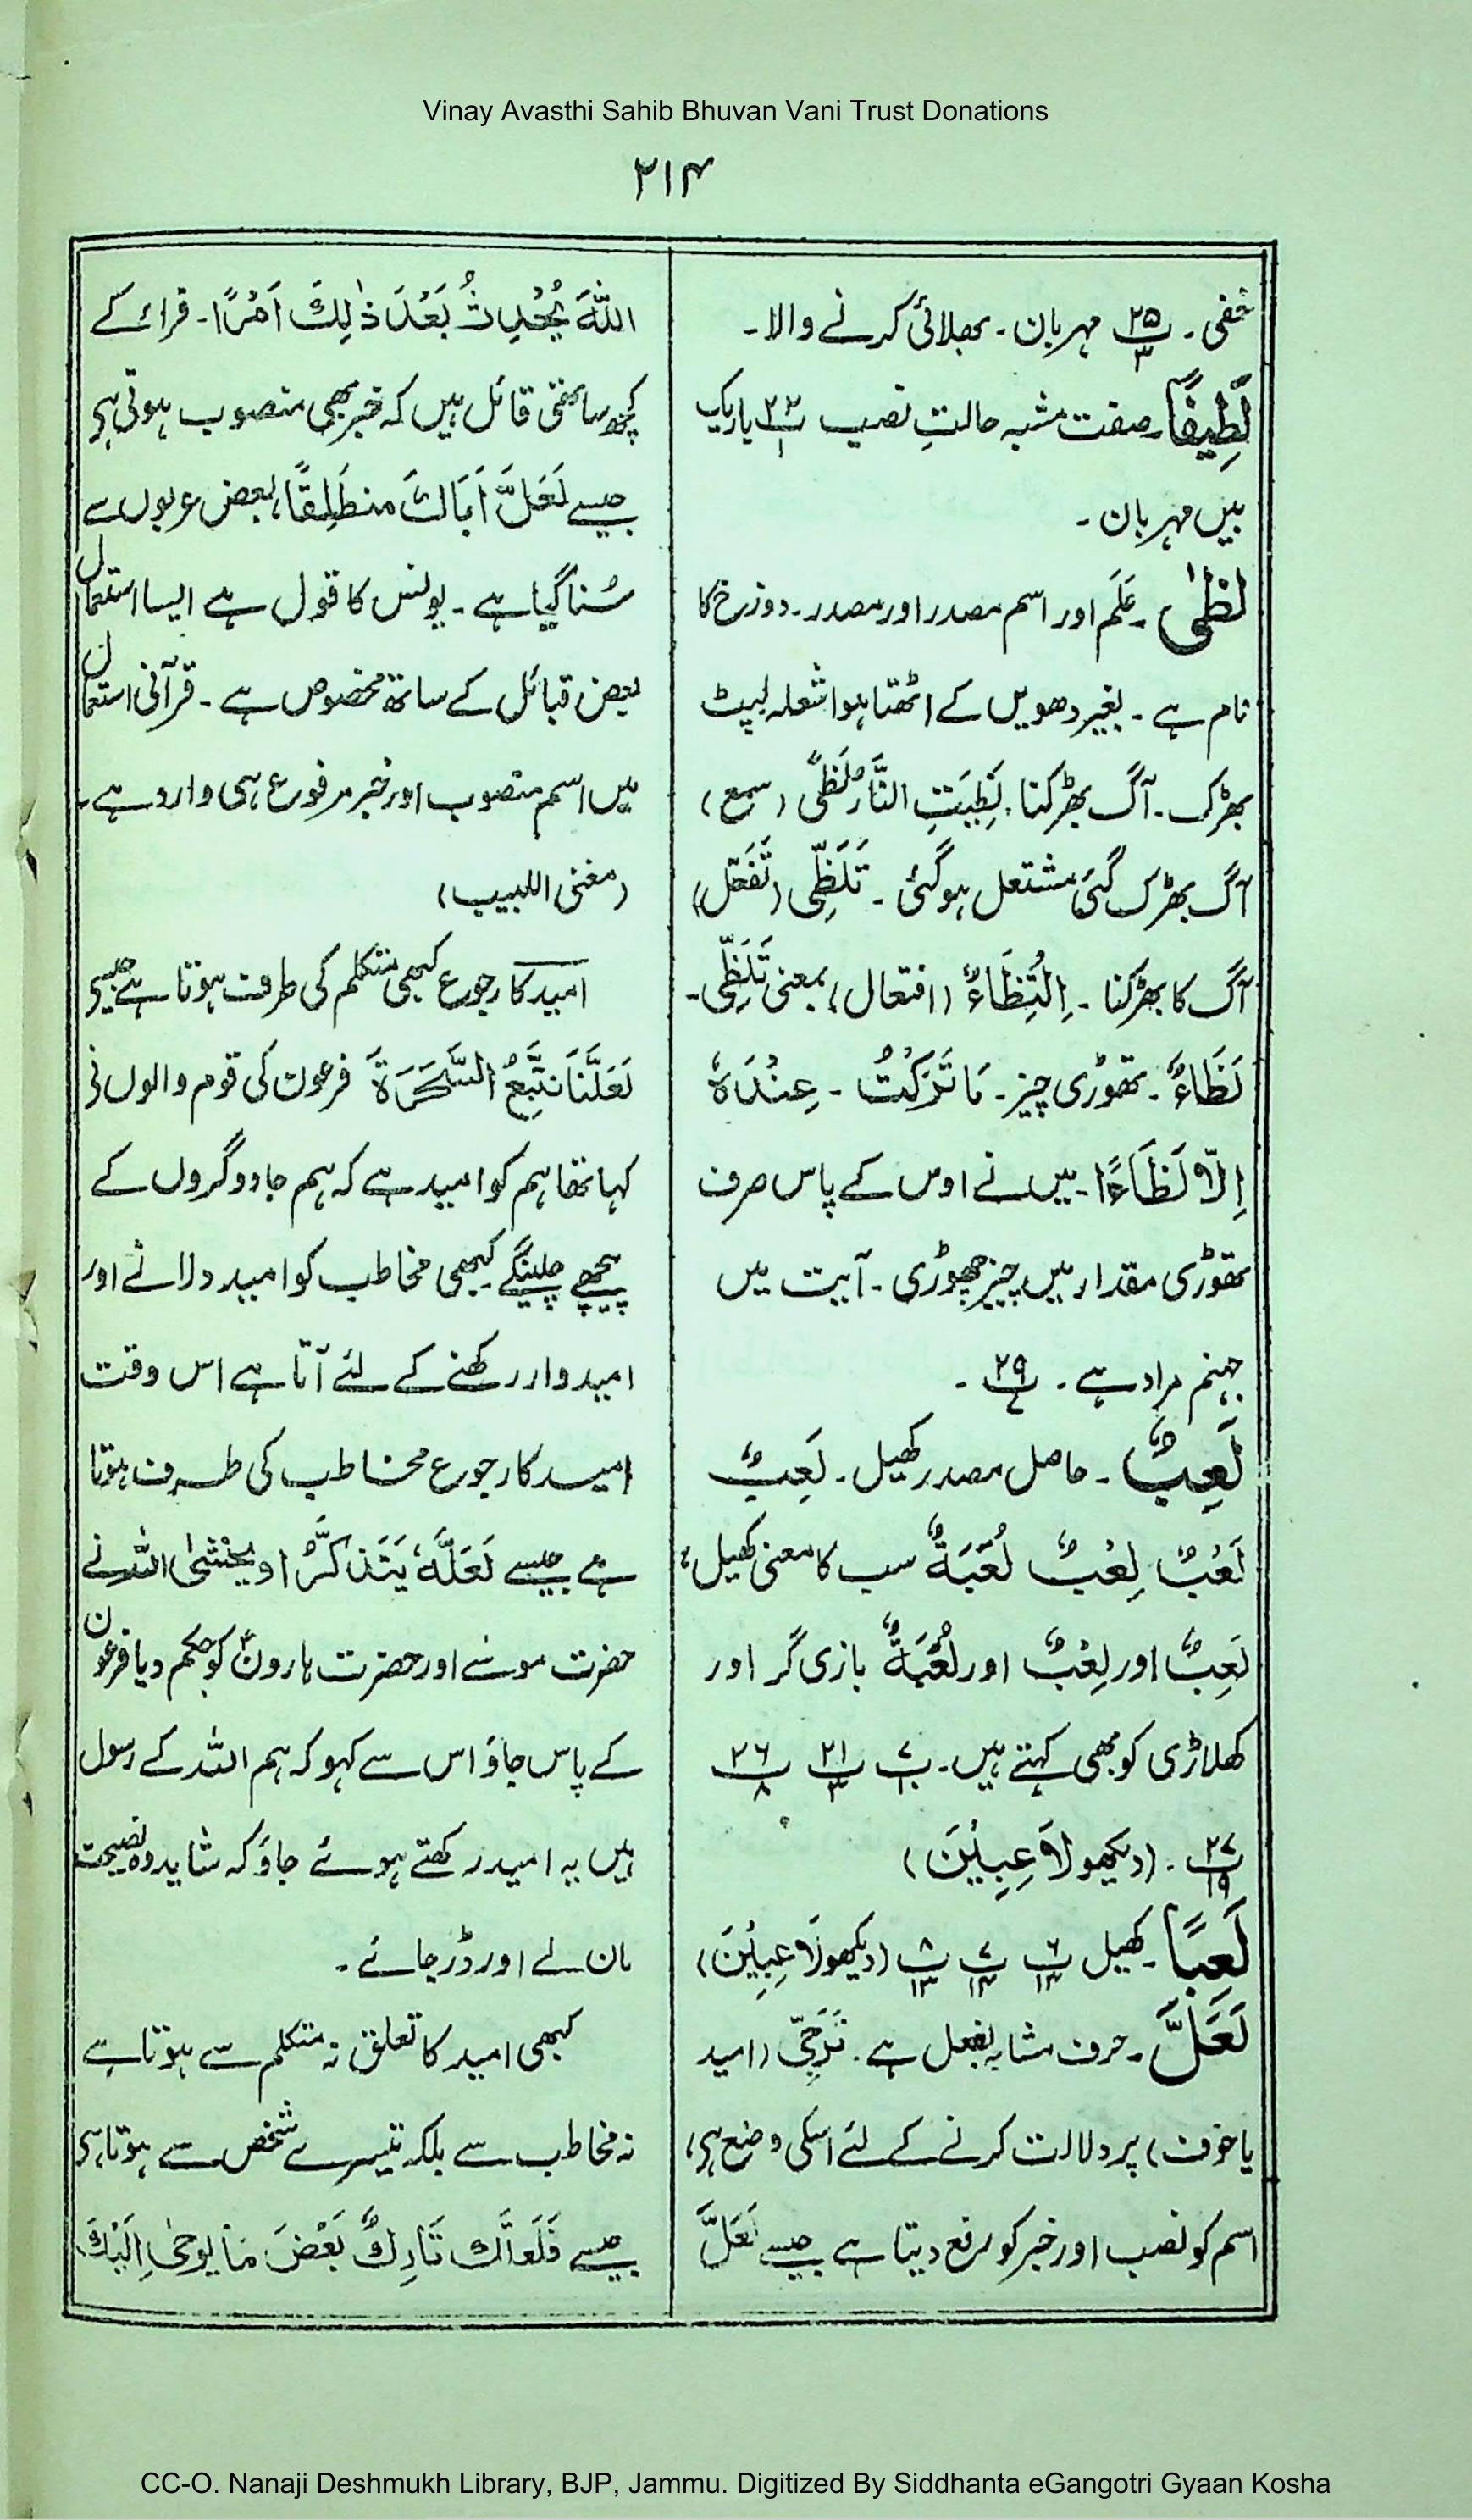 Vinay Avasthi Sahib Bhuvan Vani Trust Donations
۲۱۴
خفی۔ پ۲۵ ۳ مہربان۔ بھلائی کرنے والا۔
لَطِیفًا۔ صفت مشبہ حالتِ نصب پ۲۲ ۱ باریک
بیں مہربان۔
لَظٰی۔ عَلَم اور اسم مصدر اور مصدر۔ دوزخ کا
نام ہے۔ بغیر دھویں کے اٹھتا ہوا شعلہ لپٹ
بھڑک۔ آگ بھڑکنا۔ لَظِیَتِ النَّارُ لَظًی (سمع)
آگ بھڑک گئی مشتعل ہوگئی۔ تَلَظِّی (تَفَعّل)
آگ کا بھڑکنا۔ اِلْتِظَاءٌ (افتعال) بمعنی تَلَظِّی۔
لَظَاءٌ۔ تھوڑی چیز۔ مَا تَرَکْتُ۔ عِنْدَہٗ
اِلَّا لَظَاءًا۔ میں نے اوس کے پاس صرف
تھوڑی مقدار میں چیز چھوڑی۔ آیت میں
جہنم مراد ہے۔ پ۲۹ ۷۔
لَعِبٌ۔ حاصل مصدر کھیل۔ لَعِبٌ
لَعْبٌ لِعْبٌ لُعْبَةٌ سب کا معنی کھیل،
لَعِبٌ اور لِعْبٌ اور لُعْبَةٌ بازی گر اور
کھلاڑی کو بھی کہتے ہیں۔ پ۷ ۱۰ پ۲۱ ۳ پ۲۶ ۸
پ۲۷ ۱۹۔ (دیکھو لَاعِبِیْنَ)
لَعِبًا۔ کھیل پ۶ ۱۳ پ۷ ۱۴ پ۸ ۱۳ (دیکھو لَاعِبِیْنَ)
لَعَلَّ۔ حرف مشابہ بفعل ہے۔ تَرَجِّی (امید
یا خوف) پر دلالت کرنے کے لئے اسکی وضع ہی،
اسم کو نصب اور خبر کو رفع دیتا ہے جیسے لَعَلَّ
اللّٰہَ یُحْدِثُ بَعْدَ ذٰلِكَ اَمْرًا۔ فراء کے
کچھ ساتھی قائل ہیں کہ خبر بھی منصوب ہوتی ہی
جیسے لَعَلَّ اَبَاكَ منطَلِقًا، بعض عربوں سے
سُنا گیا ہے۔ یونس کا قول ہے ایسا استعمال
بعض قبائل کے ساتھ مخصوص ہے۔ قرآنی استعمال
میں اسم منصوب اور خبر مرفوع ہی وارد ہے۔
(مغنی اللبیب)
امید کا رجوع کبھی متکلم کی طرف ہوتا ہے جیسے
لَعَلَّنَا نَتَّبِعُ السَّحَرَةَ فرعون کی قوم والوں نی
کہا تھا ہم کو امید ہے کہ ہم جادوگروں کے
پیچھے چلینگے کبھی مخاطب کو امید دلانے اور
امیدوار رکھنے کے لئے آتا ہے اس وقت
امید کا رجوع مخاطب کی طرف ہوتا
ہے جیسے لَعَلَّہٗ یَتَذَکَّرُ او یخشٰی اللہ نے
حضرت موسٰے اور حضرت ہارونؑ کو حکم دیا فرعون
کے پاس جاؤ اس سے کہو کہ ہم اللہ کے رسول
ہیں یہ امید رکھتے ہوئے جاؤ کہ شاید وہ نصیحت
مان لے اور ڈر جائے۔
کبھی امید کا تعلق نہ متکلم سے ہوتا ہے
نہ مخاطب سے بلکہ تیسرے شخص سے ہوتا ہی
جیسے فَلَعَلَّكَ تَارِكٌ بَعْضَ مَا یوحٰی اِلَیْكَ،
CC-O. Nanaji Deshmukh Library, BJP, Jammu. Digitized By Siddhanta eGangotri Gyaan Kosha